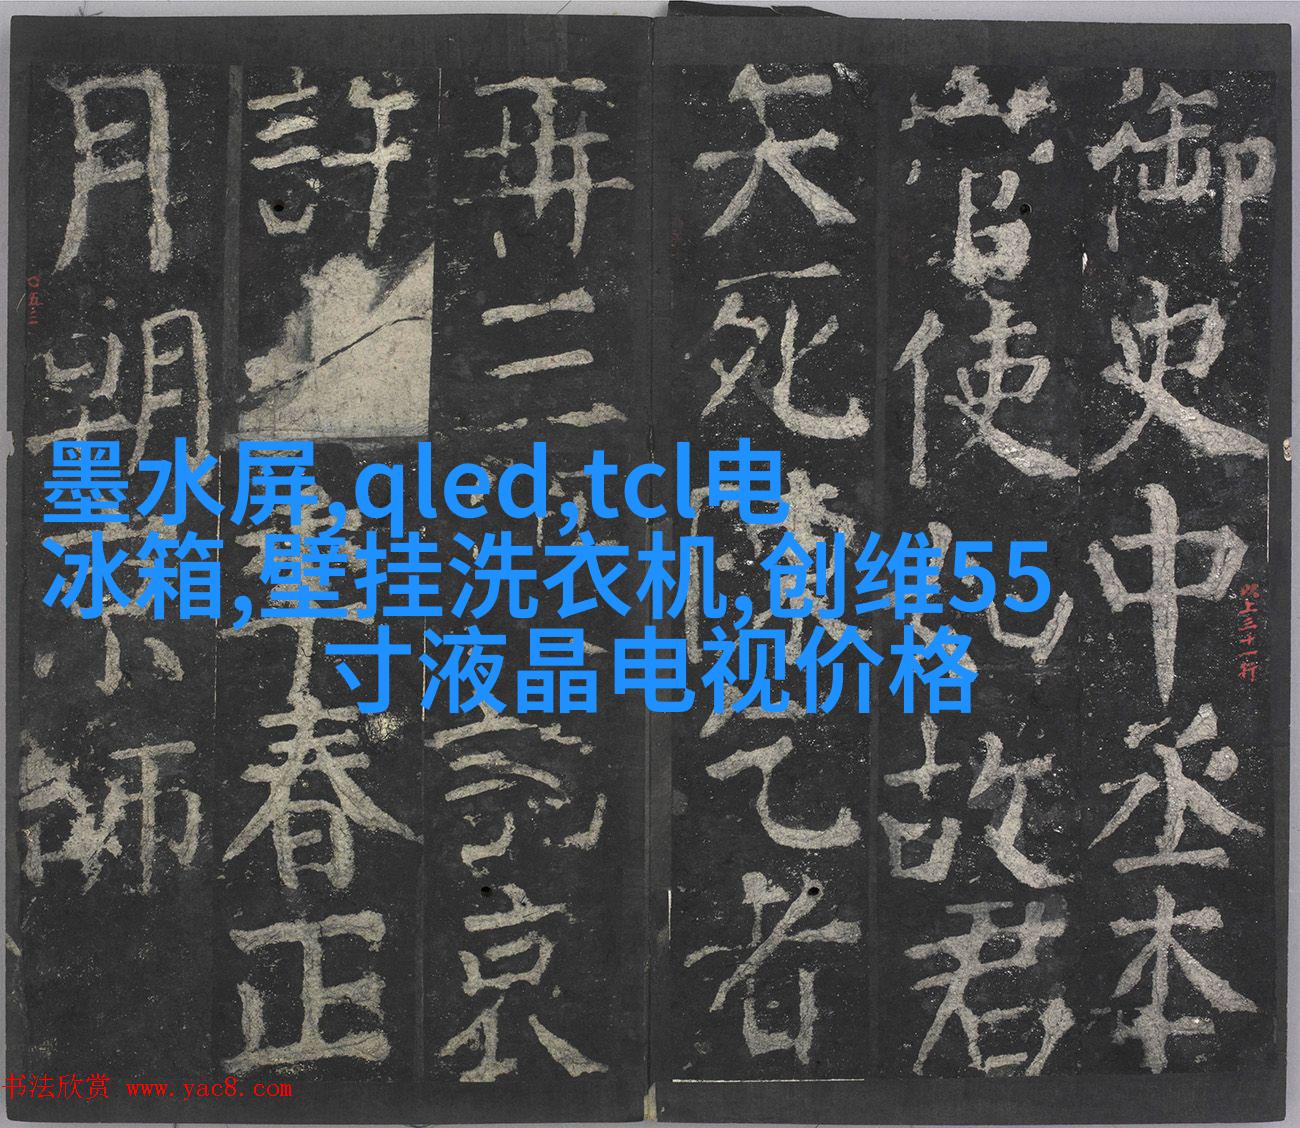 御史中丞本
當使
故君
矢死
乞者
再三
京
許
春正
月朔
師
墨水屏,qled,tcl电
冰箱,壁挂洗衣机,创维55
寸液晶电视价格
以上三十一行
〇五三
书法欣赏 www.yac8.com